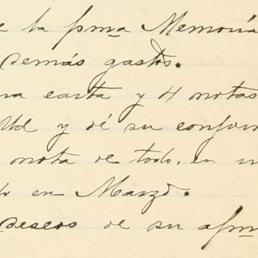 e la pma Memoria
demás gastos.
na carta y 4 notas
Ud y dé su confor
nota de todo, en
en Marzo.
deseos de su afm